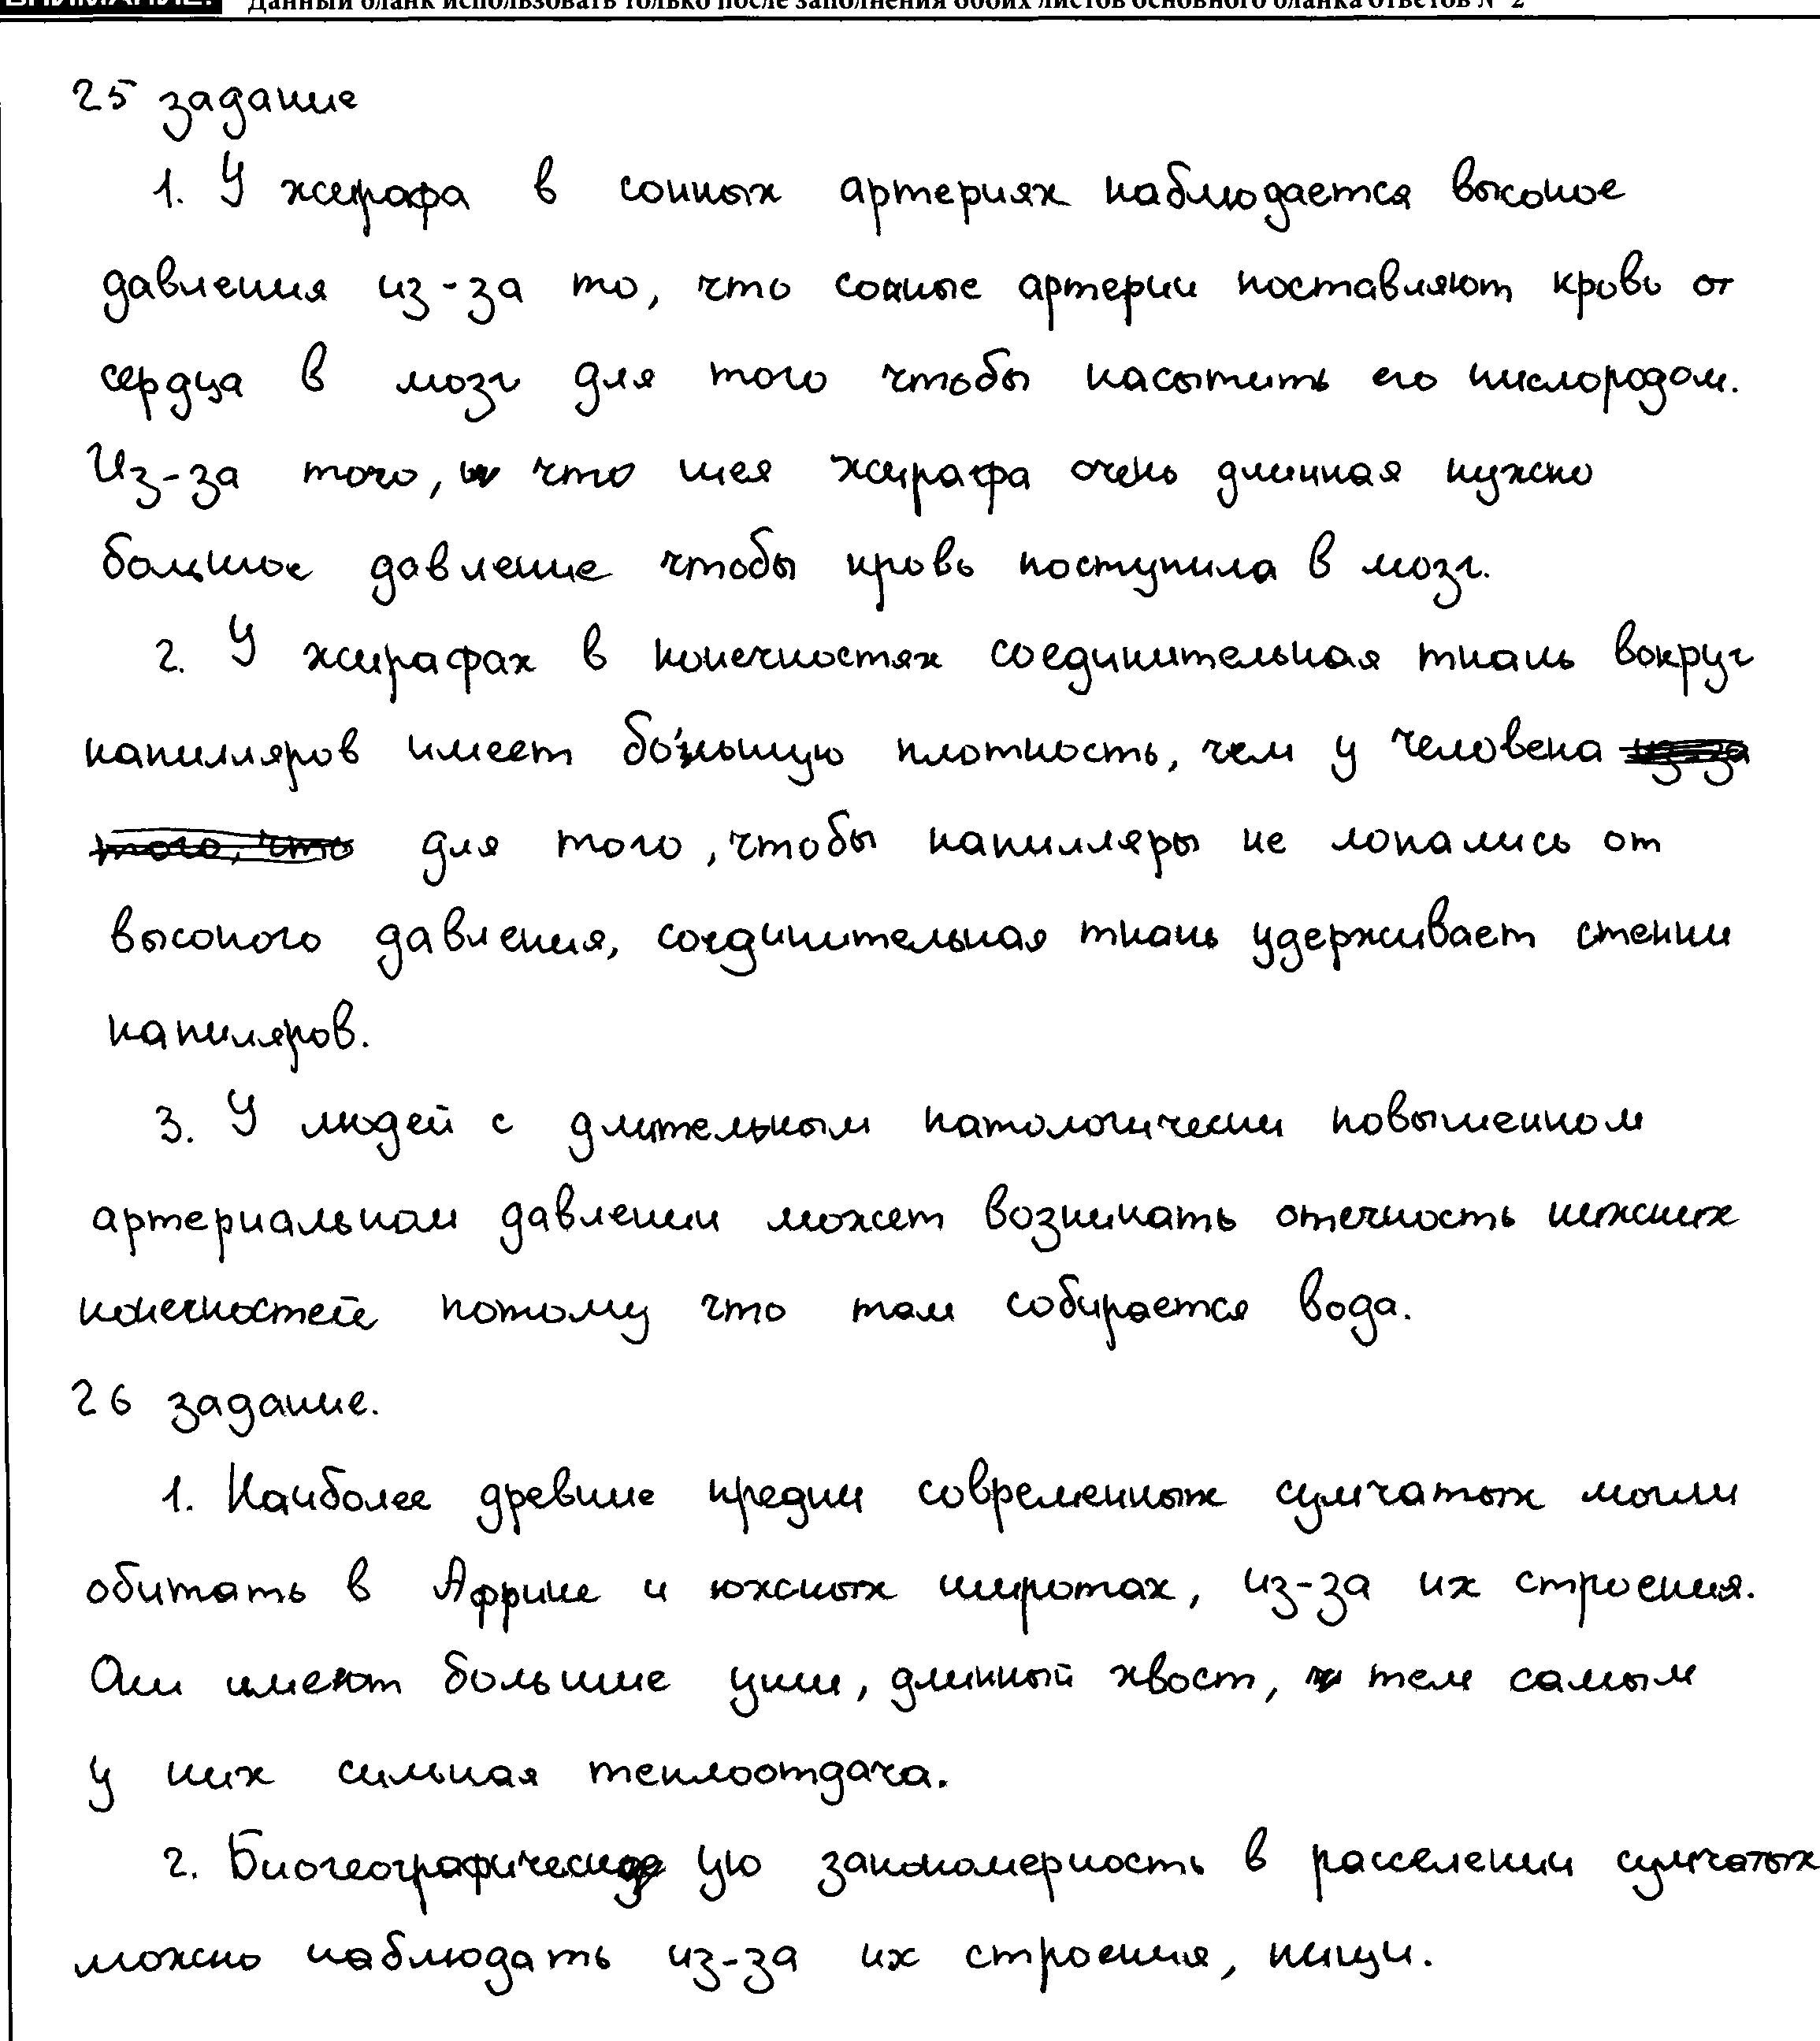 ВНИМАНИЕ! Данный бланк использовать только после заполнения обоих листов основного бланка ответов № 2
25 задание
1. У жирафа в сонных артериях наблюдается высокое
давления из-за то, что сонные артерии поставляют кровь от
сердца в мозг для того чтобы насытить его кислородом.
Из-за того, что шея жирафа очень длинная нужно
большое давление чтобы кровь поступила в мозг.
2. У жирафах в конечностях соединительная ткань вокруг
капилляров имеет бо́льшую плотность, чем у человека из-за
того, что для того, чтобы капилляры не лопались от
высокого давления, соединительная ткань удерживает стенки
капиляров.
3. У людей с длительным патологически повышенном
артериальном давлении может возникать отечность нижних
конечностей потому что там собирается вода.
26 задание.
1. Наиболее древние предки современных сумчатых могли
обитать в Африке и южных широтах, из-за их строения.
Они имеют большие уши, длинный хвост, тем самым
у них сильная теплоотдача.
2. Биогеографическую закономерность в расселении сумчатых
можно наблюдать из-за их строения, пищи.